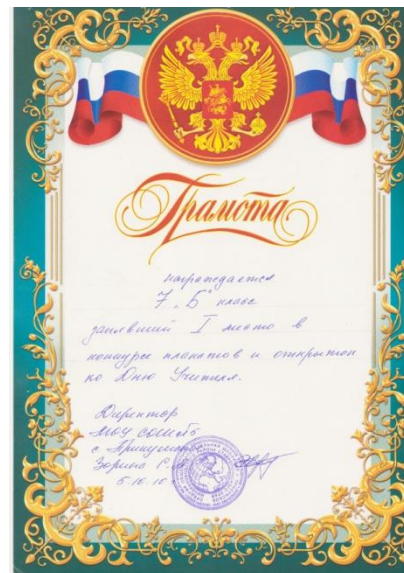 Грамота
награждается
7 „Б" класс
занявший I место в
конкурсе плакатов и открыток
ко Дню Учителя.
Директор
МОУ СОШ №5
с
Зорина Р.
5.10.10